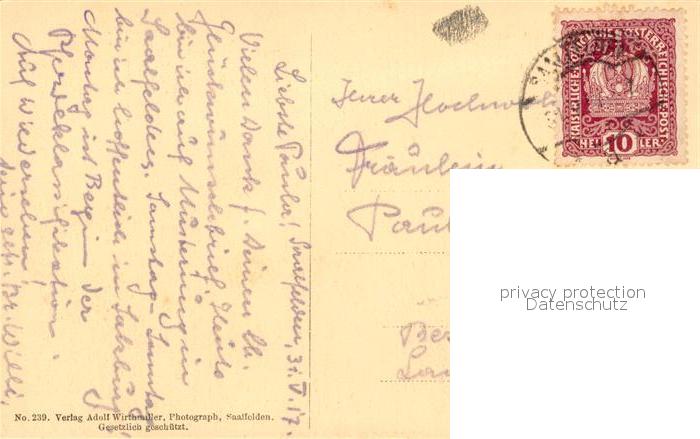 Liebste Paula! Saalfelden, 31. V. 17.
Vielen Dank f. Deinen lb.
Glückwunschbrief. Heute
bin ich auf Musterung in
Saalfelden. Samstag - Sonntag
bin ich hoffentlich in Salzburg
Montag ist Beginn der
Pferdeklassifikation.
Auf Wiedersehen!
Willi
Fräulein
Paul
KAISERLICHE KÖNIGLICHE ÖSTERREICHISCHE POST
HELLER
10
privacy protection
Datenschutz
No. 239. Verlag Adolf Wirthmiller, Photograph, Saalfelden.
Gesetzlich geschützt.